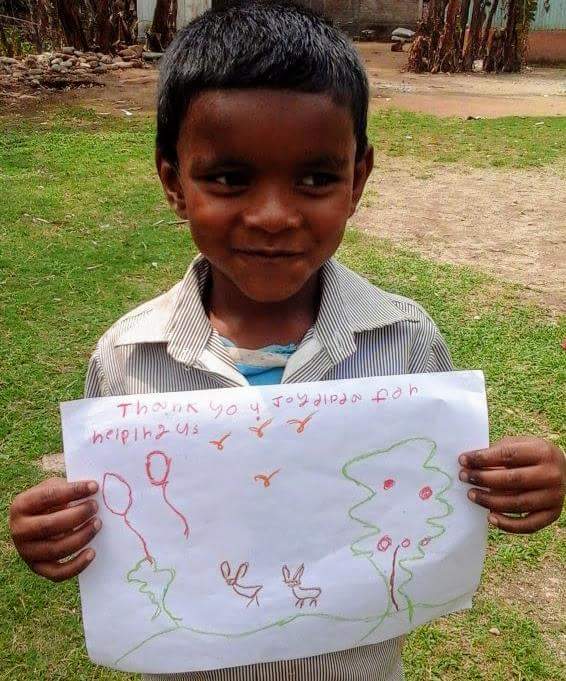 Thank you Joyalpea for
helping us